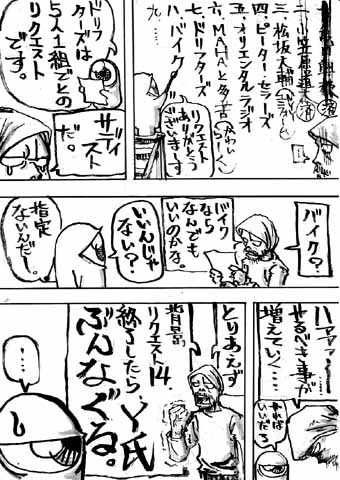 二.小笠原道大 済
三.松坂大輔
四.ピーター・セラーズ
五.オリエンタルラジオ
六.MAHAと多苦
七.ドリフターズ
八.バイク
九.
リクエスト
ありがとう
ございまーす
…
ドリフ
ターズは
5人1組ごとの
リクエスト
です。
サディ
スト
だ。
バイク?
バイク
なら
なんでも
いいのかな。
いいんじゃ
ない?
指定
ないんだし。
ハァァァー
やるべき事が
増えていく……
やれば
いいだろ
とりあえず
背景、
リクエスト14.
終了したら、Y氏
ぶんなぐる。
…!